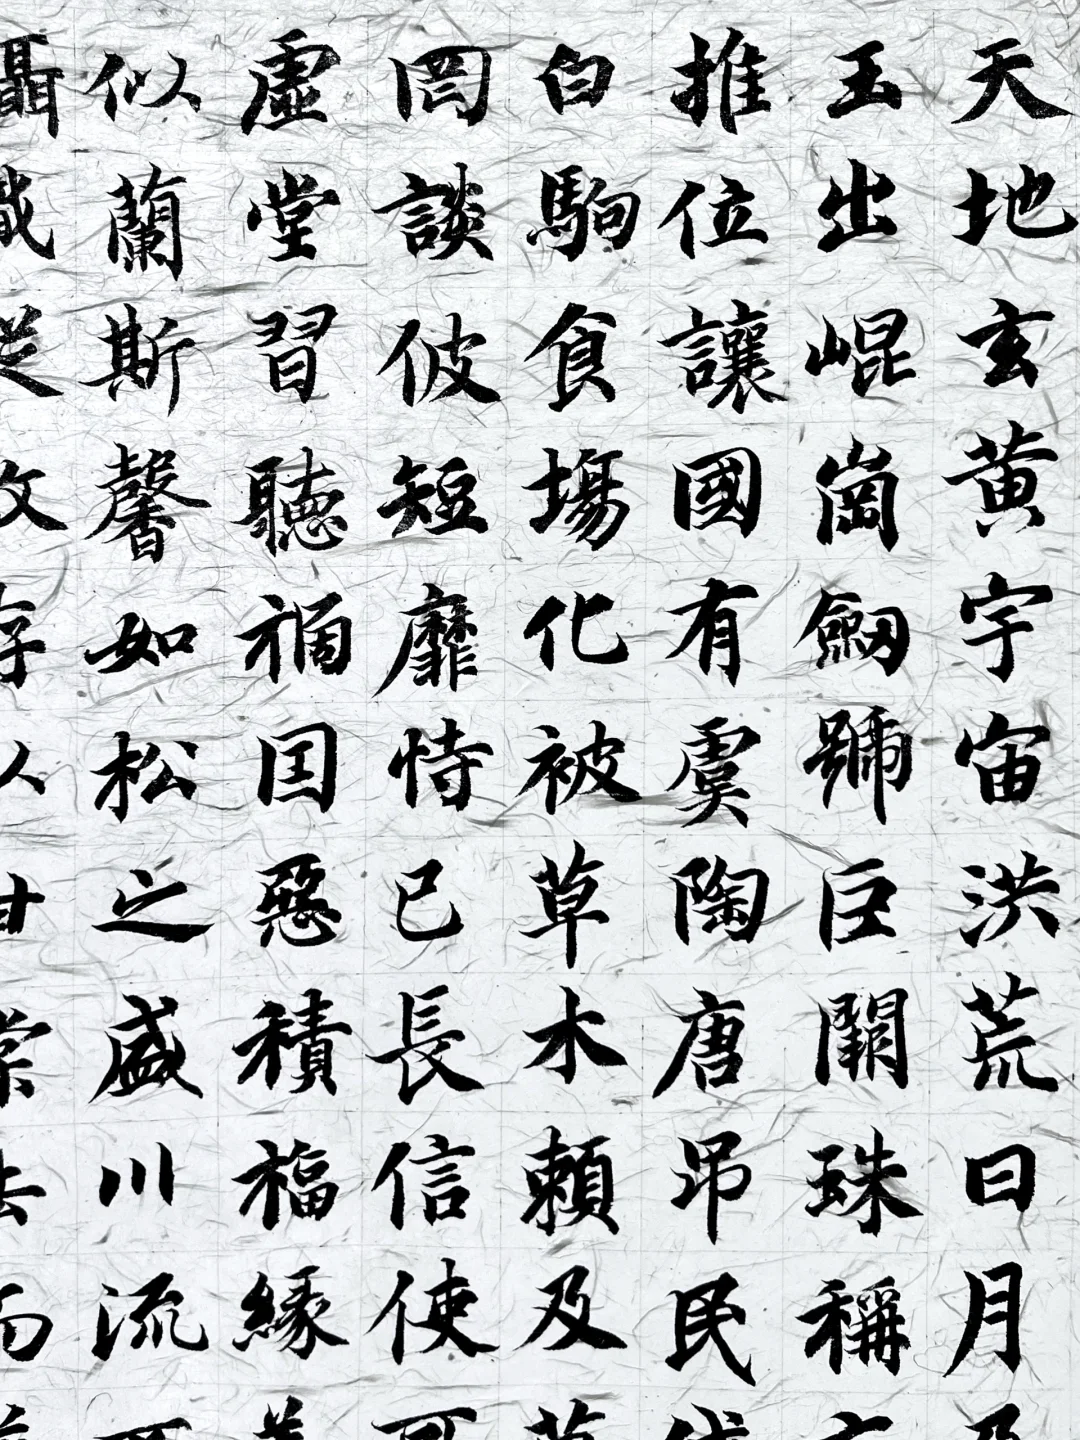 天地玄黃宇宙洪荒日月
玉出崐崗劒號巨闕珠稱
推位讓國有虞陶唐吊民
白駒食場化被草木賴及
罔談彼短靡恃己長信使
虛堂習聽禍因惡積福緣
似蘭斯馨如松之盛川流
攝職從政存以甘棠去而